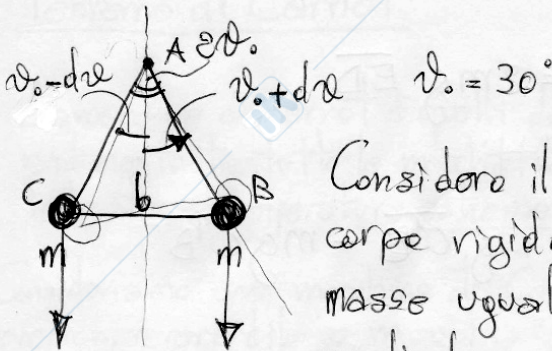 A 2ϑ₀
ϑ₀-dϑ
ϑ₀+dϑ
ϑ₀ = 30°
C
b
B
m
m
Considero il
corpo rigido
masse ugual